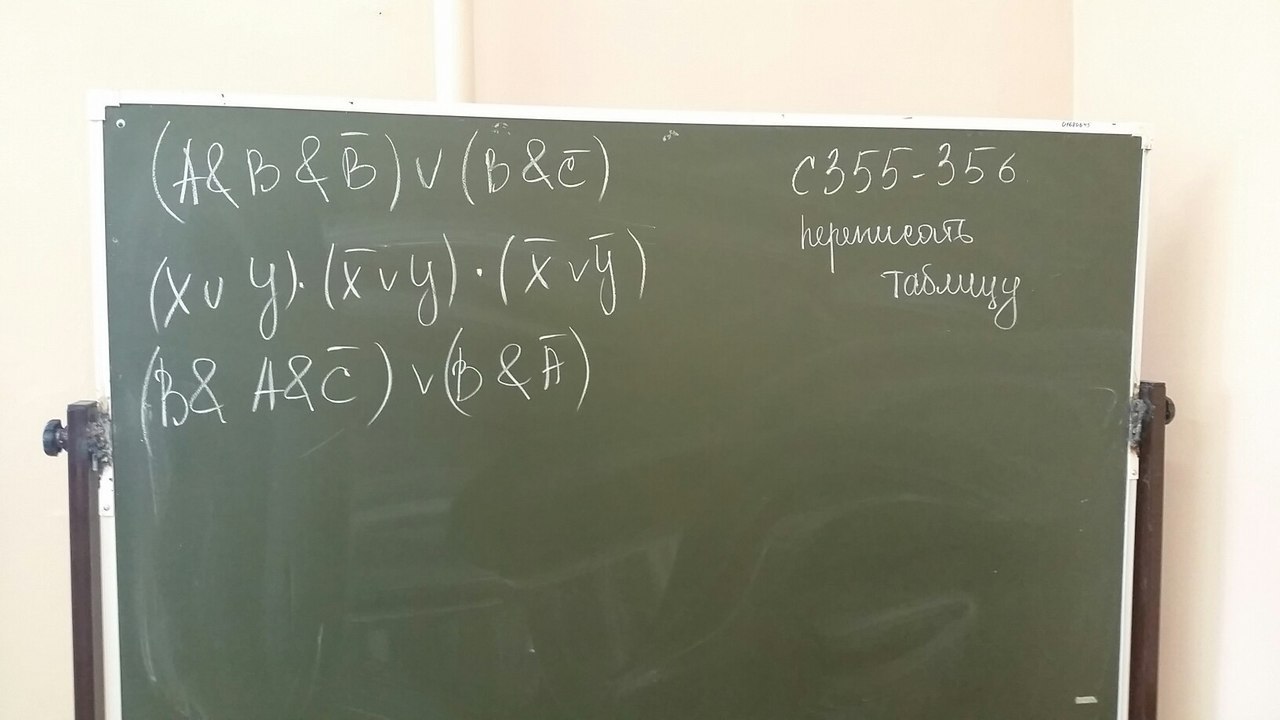 (A & B & B̅) ∨ (B & C̅)
(X ∨ Y) · (X̅ ∨ Y) · (X̅ ∨ Y̅)
(B & A & C̅) ∨ (B & A̅)
С 355-356
переписать
таблицу